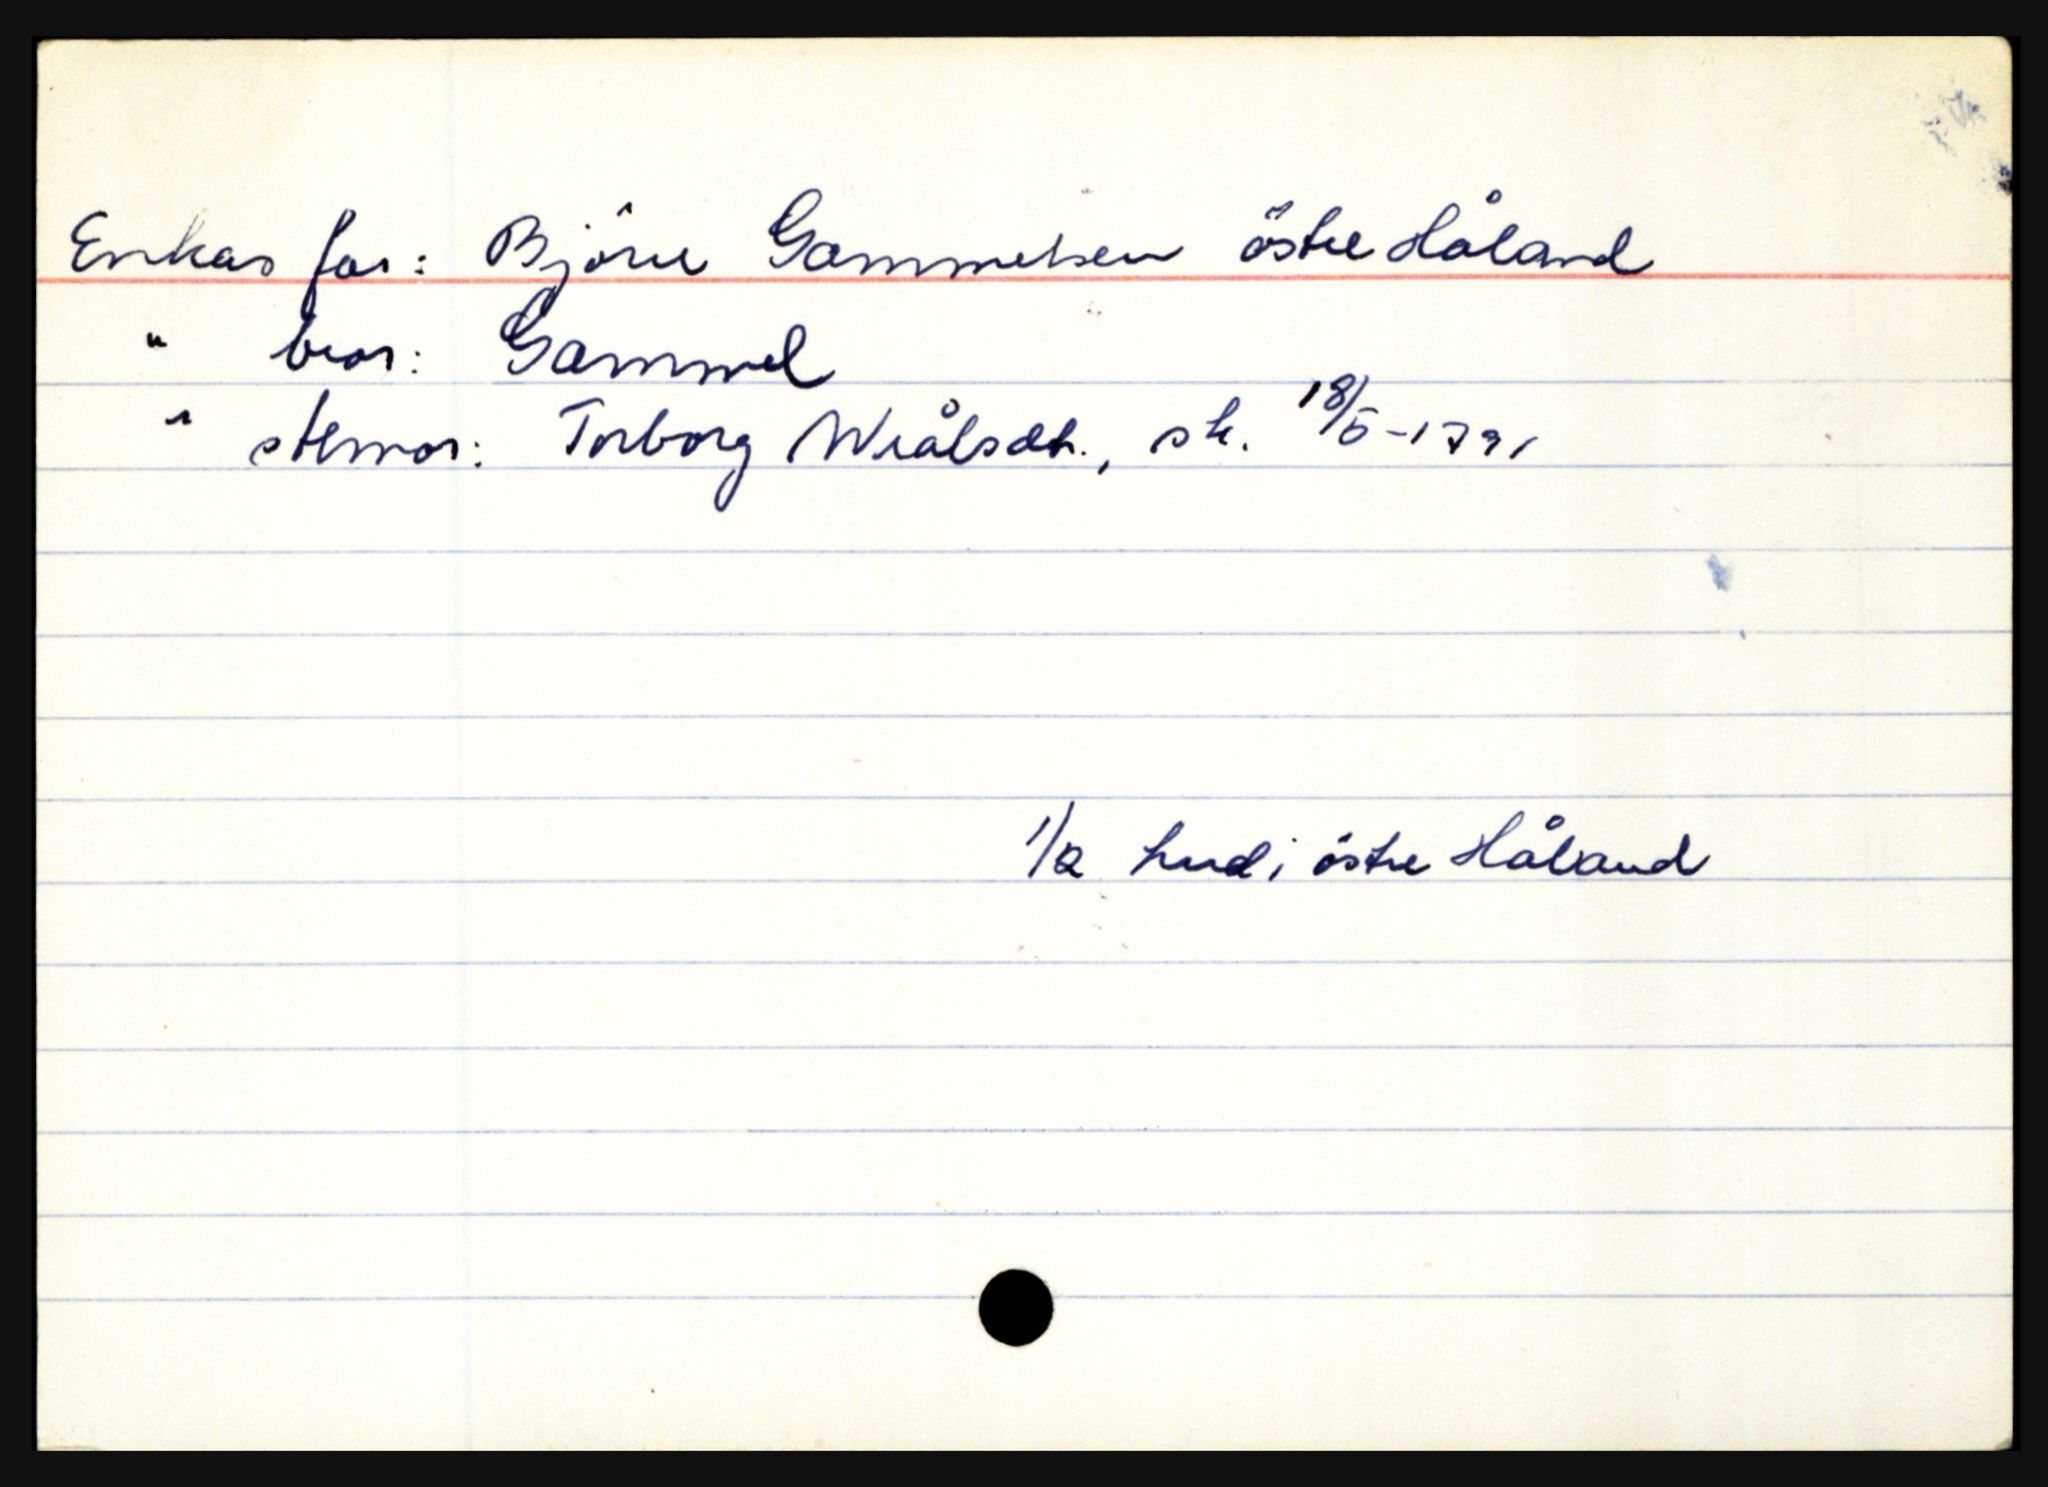 Enkas far: Björn Gammelsen östre Håland
" bror: Gammel
" stemor: Torborg Wrålsdtr., sk. 18/5-1791
1/2 hud i östre Håland